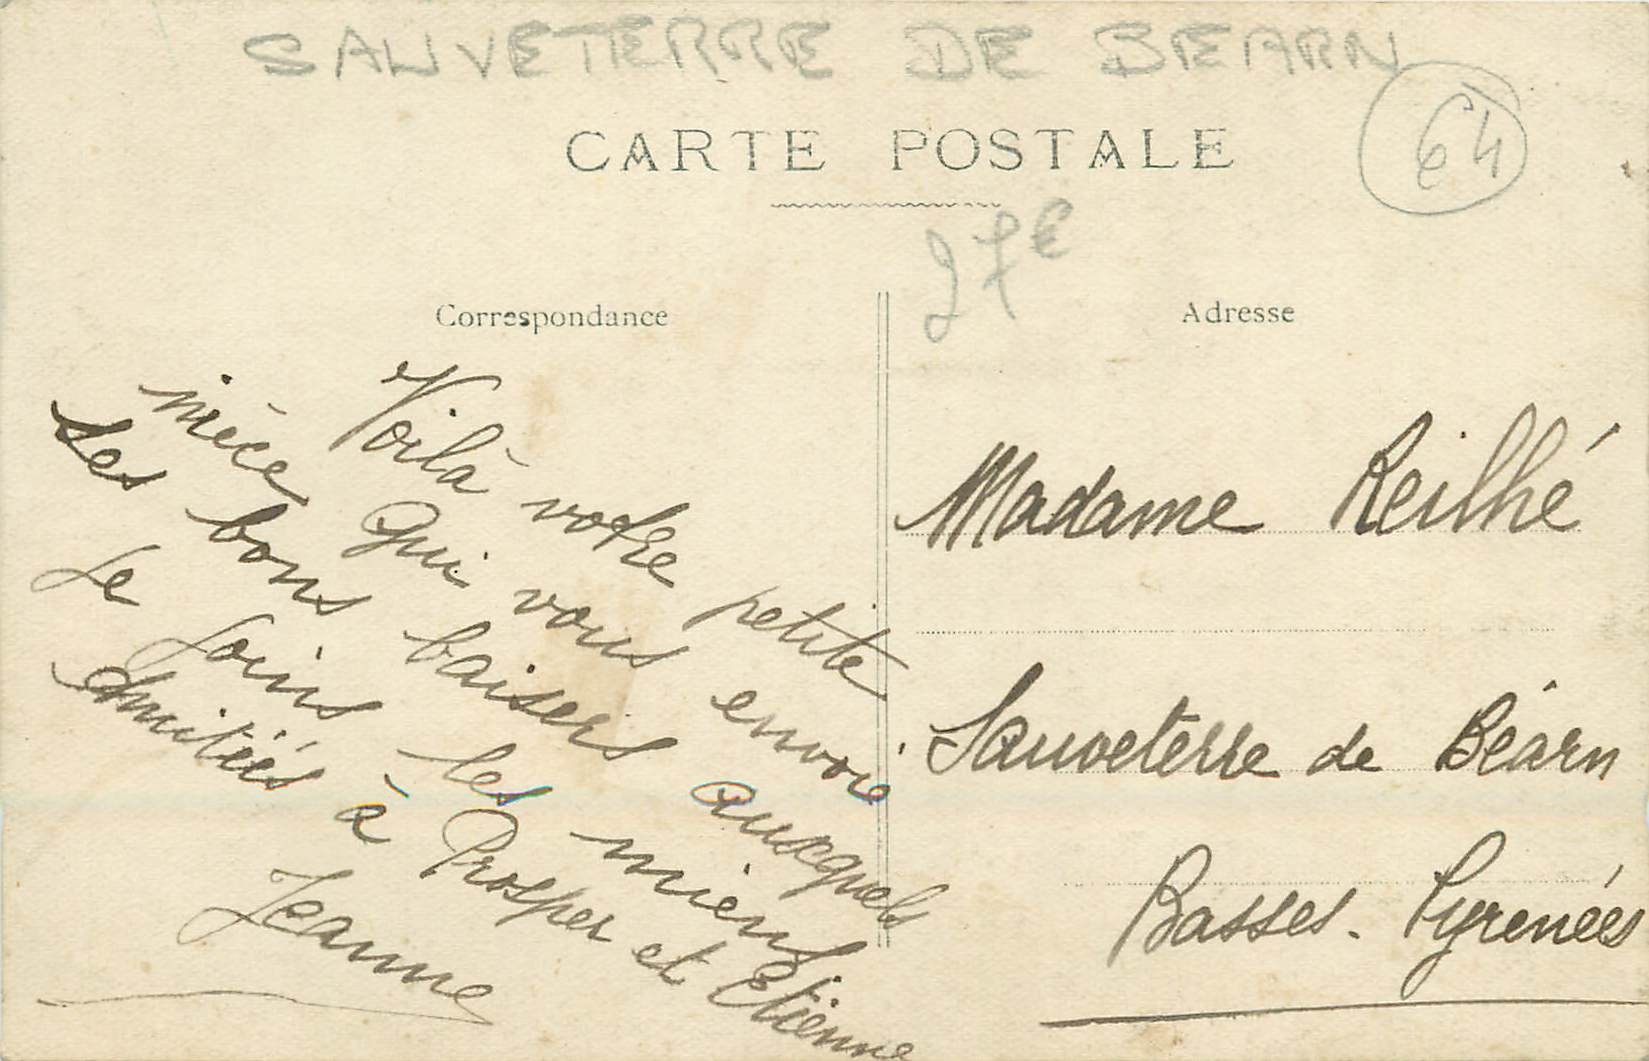 SAUVETERRE DE BEARN
64
CARTE POSTALE
27€
Correspondance
Adresse
Voilà votre petite
nièce Qui vous envoie
Ses bons baisers auxquels
Je Joins les miens
Amitiés à Prosper et Etienne
Jeanne
Madame Reilhé
Sauveterre de Béarn
Basses-Pyrenées